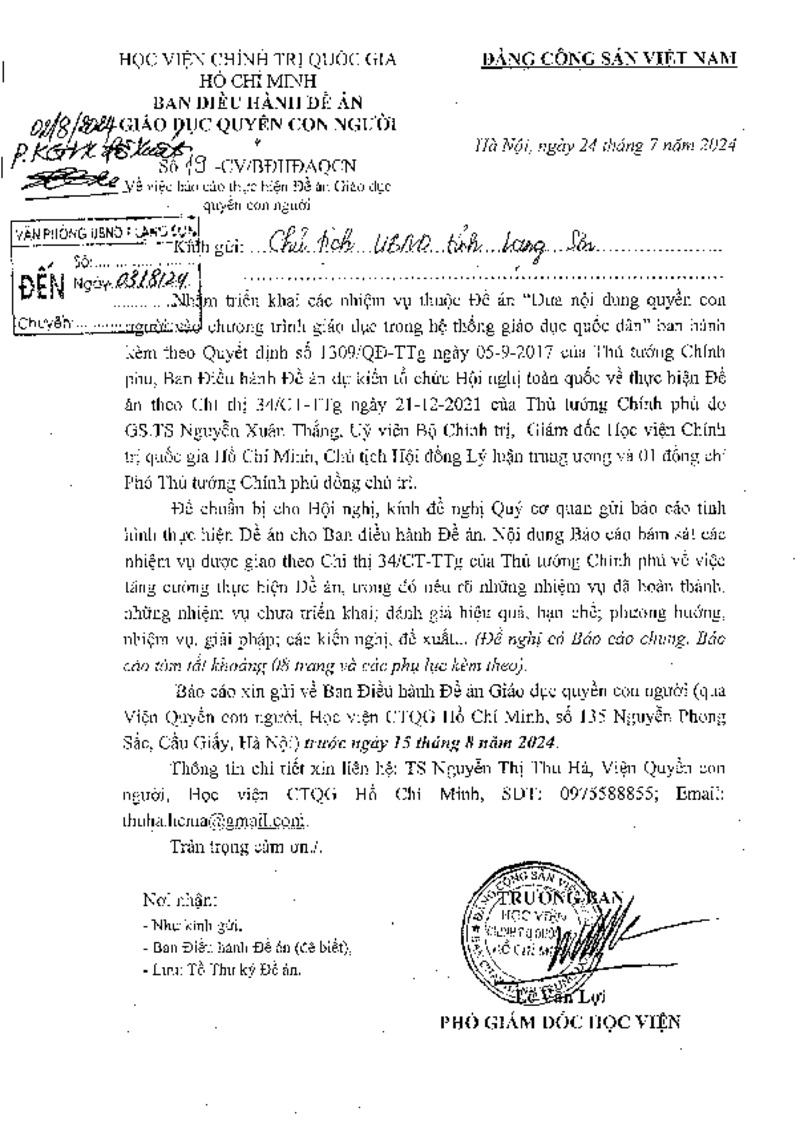 HỌC VIỆN CHÍNH TRỊ QUỐC GIA
HỒ CHÍ MINH
BAN ĐIỀU HÀNH ĐỀ ÁN
GIÁO DỤC QUYỀN CON NGƯỜI
*
ĐẢNG CỘNG SẢN VIỆT NAM
Hà Nội, ngày 24 tháng 7 năm 2024
02/8/2024
P.KGVX đề xuất
Số 19 -CV/BĐHĐAQCN
Về việc báo cáo thực hiện Đề án Giáo dục
quyền con người
VĂN PHÒNG UBND T LẠNG SƠN
ĐẾN
Số: ..................
Ngày: 03/8/24
Chuyển: ............
Kính gửi: ... Chủ tịch UBND tỉnh Lạng Sơn
Nhằm triển khai các nhiệm vụ thuộc Đề án “Đưa nội dung quyền con
người vào chương trình giáo dục trong hệ thống giáo dục quốc dân” ban hành
kèm theo Quyết định số 1309/QĐ-TTg ngày 05-9-2017 của Thủ tướng Chính
phủ, Ban Điều hành Đề án dự kiến tổ chức Hội nghị toàn quốc về thực hiện Đề
án theo Chỉ thị 34/CT-TTg ngày 21-12-2021 của Thủ tướng Chính phủ do
GS.TS Nguyễn Xuân Thắng, Uỷ viên Bộ Chính trị, Giám đốc Học viện Chính
trị quốc gia Hồ Chí Minh, Chủ tịch Hội đồng Lý luận trung ương và 01 đồng chí
Phó Thủ tướng Chính phủ đồng chủ trì.
Để chuẩn bị cho Hội nghị, kính đề nghị Quý cơ quan gửi báo cáo tình
hình thực hiện Đề án cho Ban điều hành Đề án. Nội dung Báo cáo bám sát các
nhiệm vụ được giao theo Chỉ thị 34/CT-TTg của Thủ tướng Chính phủ về việc
tăng cường thực hiện Đề án, trong đó nêu rõ những nhiệm vụ đã hoàn thành,
những nhiệm vụ chưa triển khai; đánh giá hiệu quả, hạn chế; phương hướng,
nhiệm vụ, giải pháp; các kiến nghị, đề xuất... (Đề nghị có Báo cáo chung, Báo
cáo tóm tắt khoảng 08 trang và các phụ lục kèm theo).
Báo cáo xin gửi về Ban Điều hành Đề án Giáo dục quyền con người (qua
Viện Quyền con người, Học viện CTQG Hồ Chí Minh, số 135 Nguyễn Phong
Sắc, Cầu Giấy, Hà Nội) trước ngày 15 tháng 8 năm 2024.
Thông tin chi tiết xin liên hệ: TS Nguyễn Thị Thu Hà, Viện Quyền con
người, Học viện CTQG Hồ Chí Minh, SĐT: 0975588855; Email:
thuha.hcma@gmail.com.
Trân trọng cảm ơn./.
Nơi nhận:
- Như kính gửi,
- Ban Điều hành Đề án (để biết),
- Lưu: Tổ Thư ký Đề án.
TRƯỞNG BAN
HỌC VIỆN
CHÍNH TRỊ QUỐC
HỒ CHÍ MINH
Lê Văn Lợi
PHÓ GIÁM ĐỐC HỌC VIỆN